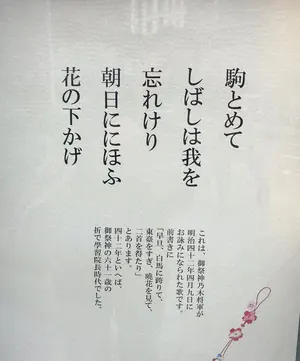 駒とめて
しばしは我を
忘れけり
朝日ににほふ
花の下かげ
これは、御祭神乃木将軍が
明治四十二年四月九日に
お詠みになられた歌です。
前書きに
「早旦、白馬に跨りて、
東臺をすぎ、曉花を見て、
二首を得たり」
とあります。
四十二年といへば、
御祭神の六十一歳の
折で學習院長時代でした。